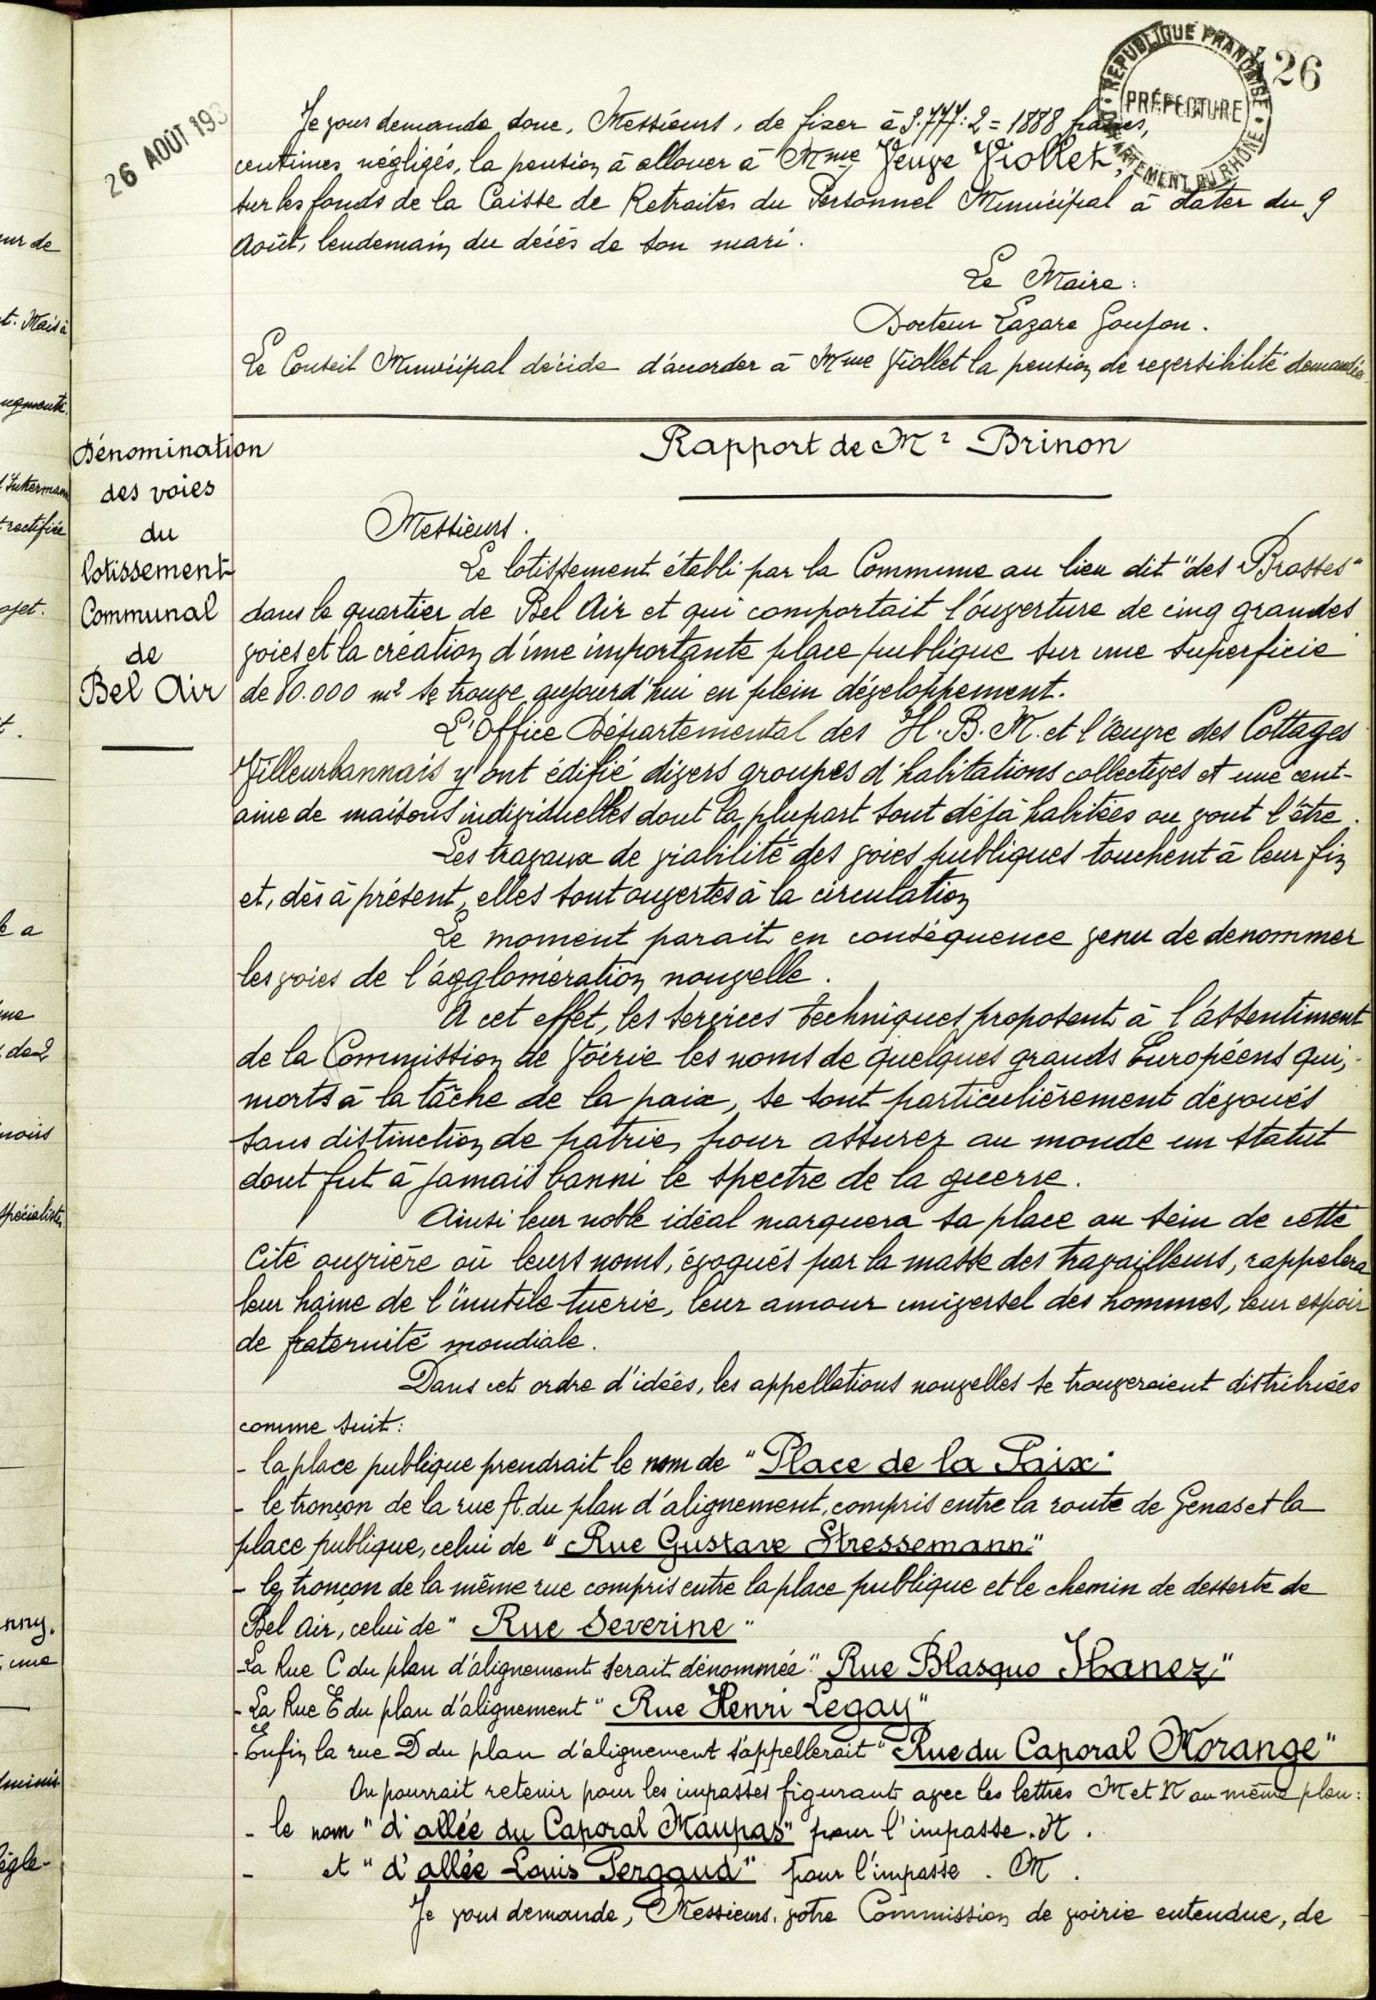 26
RÉPUBLIQUE FRANÇAISE
PRÉFECTURE
DÉPARTEMENT DU RHÔNE
26 AOÛT 193
Je vous demande donc, Messieurs, de fixer à 3.777 : 2 = 1888 francs,
centimes négligés, la pension à allouer à Mme Veuve Viollet,
sur les fonds de la Caisse de Retraites du Personnel Municipal à dater du 9
Août, lendemain du décès de son mari.
Le Maire :
Docteur Lazare Goujon.
Le Conseil Municipal décide d'accorder à Mme Viollet la pension de reversibilité demandée.
Dénomination
des voies
du
lotissement
Communal
de
Bel Air
Rapport de Mr Brinon
Messieurs.
Le lotissement établi par la Commune au lieu dit "des Brosses"
dans le quartier de Bel Air et qui comportait l'ouverture de cinq grandes
voies et la création d'une importante place publique sur une superficie
de 80.000 m2 se trouve aujourd'hui en plein développement.
L'Office Départemental des H.B.M. et l'œuvre des Cottages
Villeurbannais y ont édifié divers groupes d'habitations collectives et une cent-
aine de maisons individuelles dont la plupart sont déjà habitées ou vont l'être.
Les travaux de viabilité des voies publiques touchent à leur fin
et, dès à présent, elles sont ouvertes à la circulation
Le moment parait en conséquence venu de denommer
les voies de l'agglomération nouvelle.
A cet effet, les services techniques proposent à l'assentiment
de la Commission de Voirie les noms de quelques grands Européens qui,
morts à la tâche de la paix, se sont particulièrement dévoués
sans distinction de patrie, pour assurer au monde un statut
dont fut à jamais banni le spectre de la guerre.
Ainsi leur noble idéal marquera sa place au sein de cette
Cité ouvrière où leurs noms, évoqués par la masse des travailleurs, rappelera
leur haine de l'inutile tuerie, leur amour universel des hommes, leur espoir
de fraternité mondiale.
Dans cet ordre d'idées, les appellations nouvelles se trouveraient distribuées
comme suit :
- la place publique prendrait le nom de "Place de la Paix"
- le tronçon de la rue A. du plan d'alignement, compris entre la route de Genas et la
place publique, celui de "Rue Gustave Stressemann"
- le tronçon de la même rue compris entre la place publique et le chemin de desserte de
Bel Air, celui de "Rue Severine"
- La Rue C du plan d'alignement serait dénommée "Rue Blasquo Ibanez"
- La Rue E du plan d'alignement "Rue Henri Legay"
- Enfin la rue D du plan d'alignement s'appellerait "Rue du Caporal Morange"
On pourrait retenir pour les impasses figurant avec les lettres M et N au même plan :
- le nom "d'allée du Caporal Maupas" pour l'impasse. N.
- et "d'allée Louis Pergaud" pour l'impasse. M.
Je vous demande, Messieurs, votre Commission de voirie entendue, de